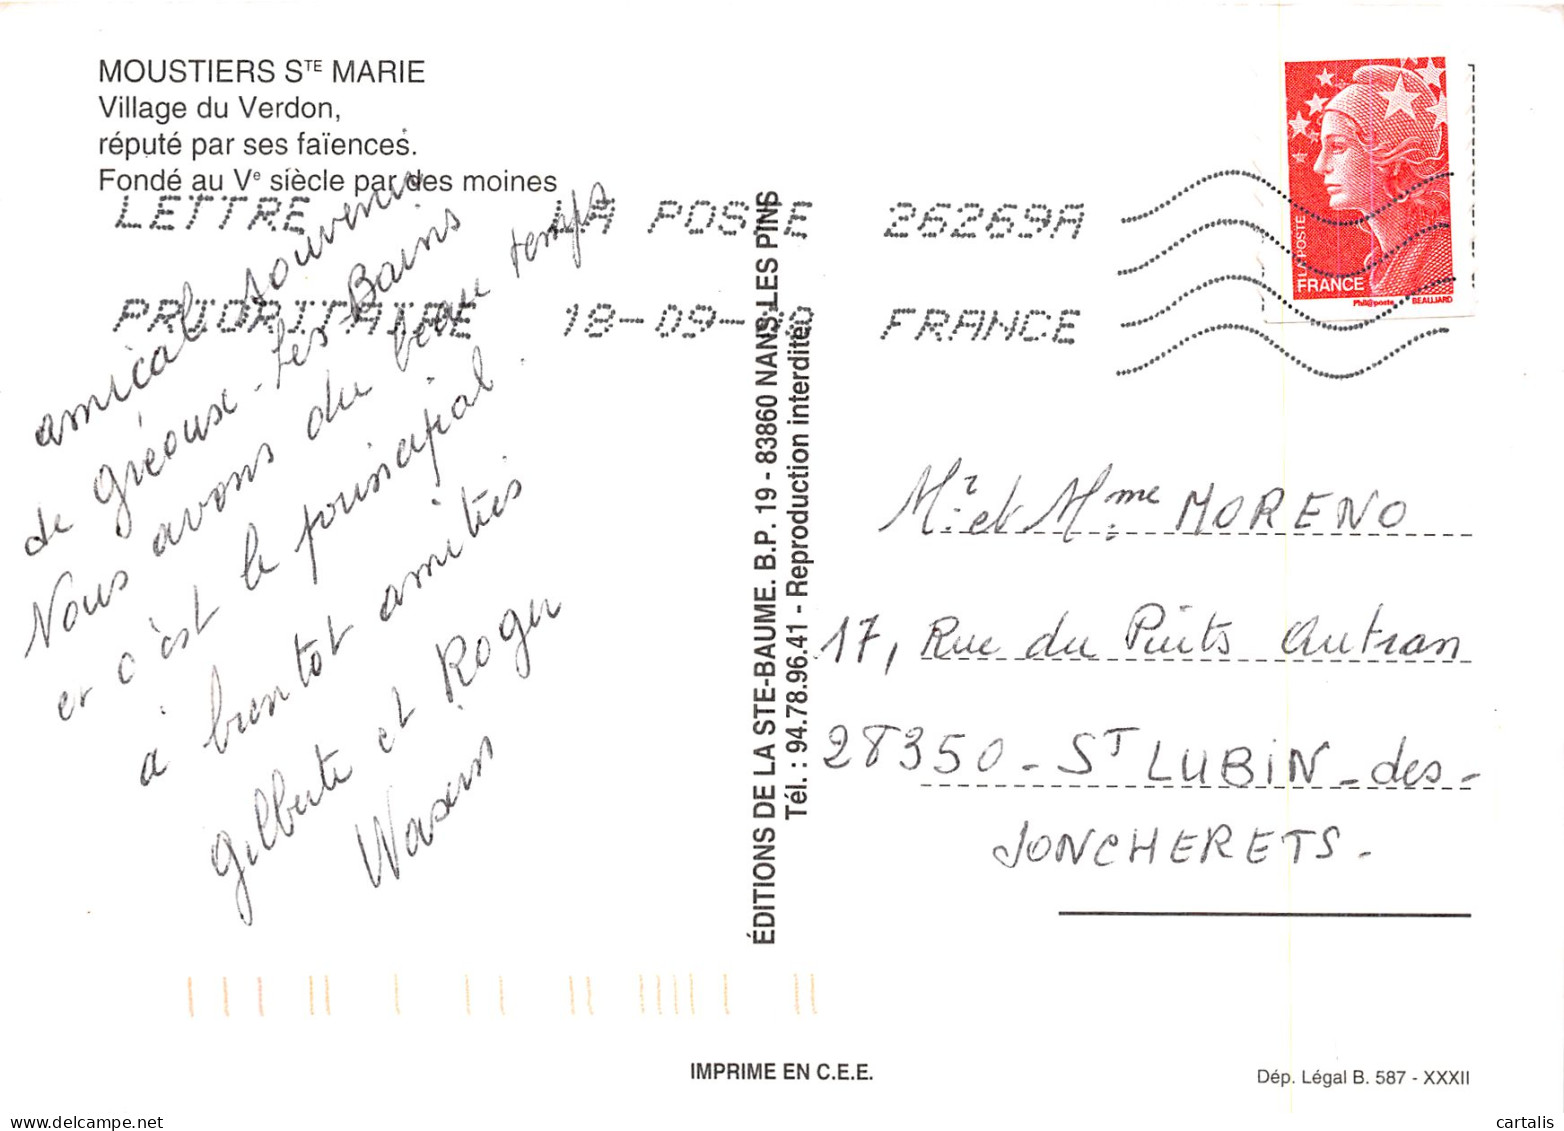 MOUSTIERS STE MARIE
Village du Verdon,
réputé par ses faïences.
Fondé au Ve siècle par des moines
LETTRE LA POSTE 26269A
PRIORITAIRE 18-09- FRANCE
amical souvenir
de Gréoux-les-Bains
Nous avons du beau temps
et c'est le principal.
à bientot amitiés
Gilberte et Roger
ÉDITIONS DE LA STE-BAUME. B.P. 19 - 83860 NANS-LES PINS
Tél. : 94.78.96.41 - Reproduction interdite
LA POSTE
FRANCE
Phil@poste BEAUJARD
Mr. et Mme MORENO
17, Rue du Puits Autran
28350 - ST LUBIN - des -
JONCHERETS -
IMPRIME EN C.E.E.
Dép. Légal B. 587 - XXXII
www.delcampe.net
cartalis